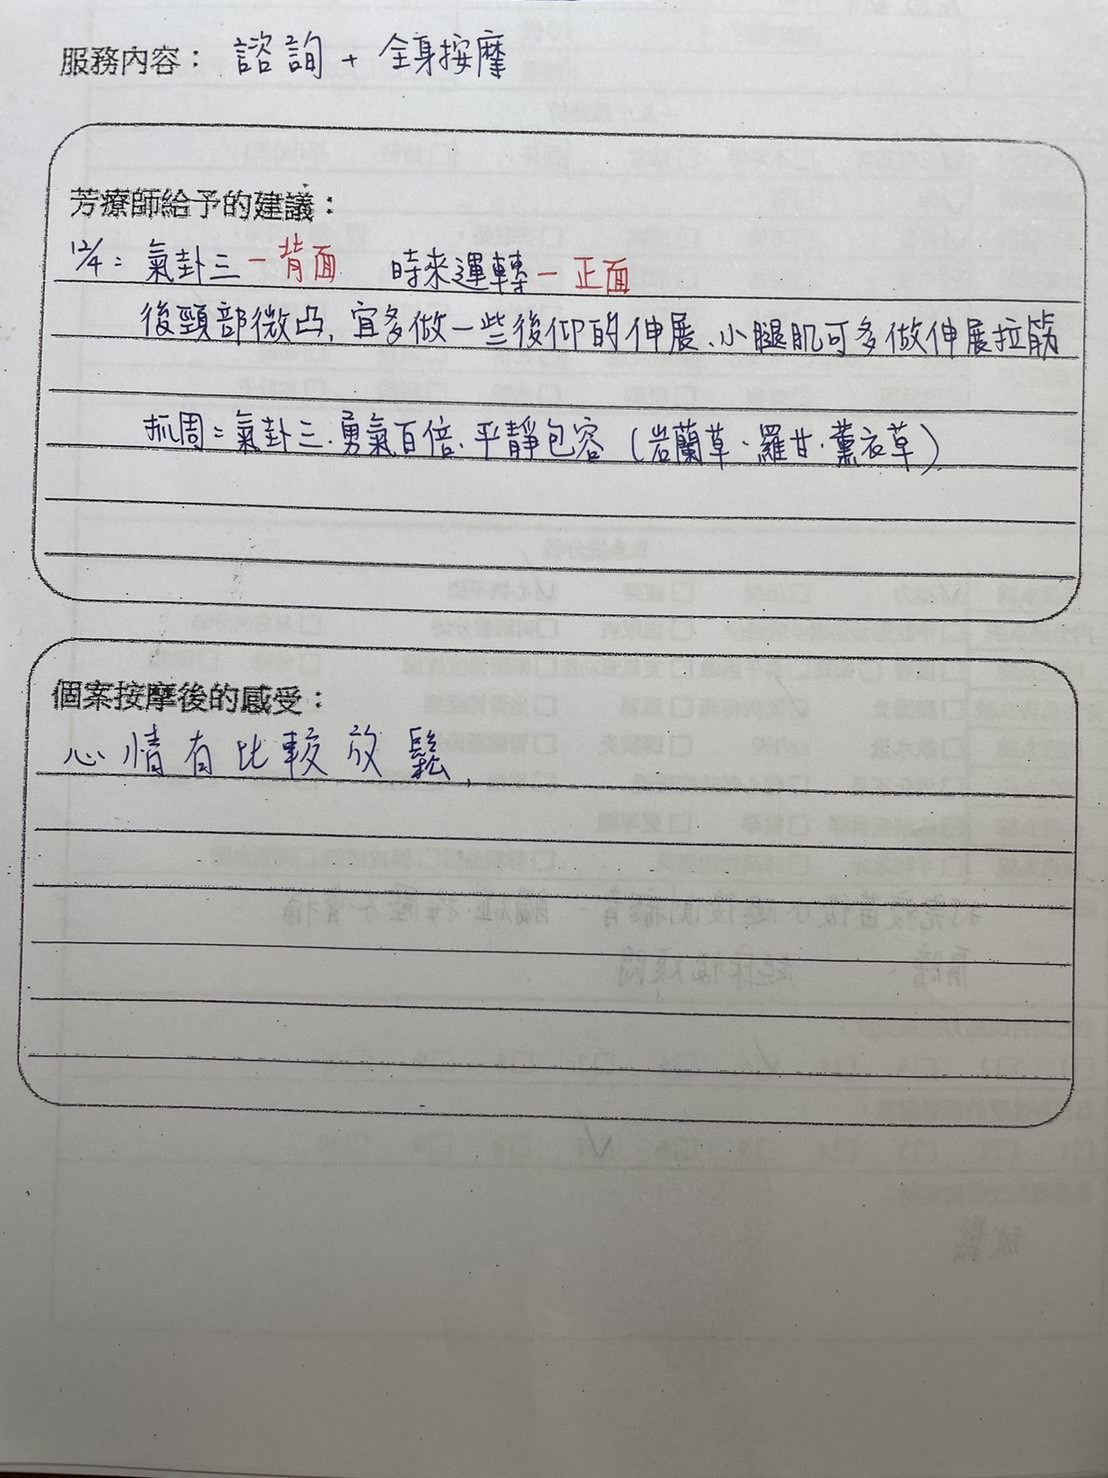 服務內容： 諮詢 + 全身按摩
芳療師給予的建議：
12/4：氣卦三 - 背面 時來運轉 - 正面
後頸部微凸，宜多做一些後仰的伸展、小腿肌可多做伸展拉筋
抓周：氣卦三．勇氣百倍．平靜包容（岩蘭草．羅甘．薰衣草）
個案按摩後的感受：
心情有比較放鬆，